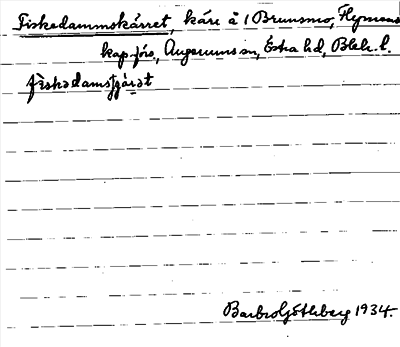 Fiskedammskärret, kärr å 1 Brunsmo, Flymens
kap.förs., Augerums sn, Östra hd, Blek. l.
Barbro Göthberg 1934.